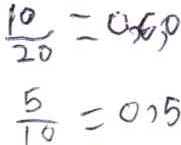 10/20 = 0,60
5/10 = 0,5